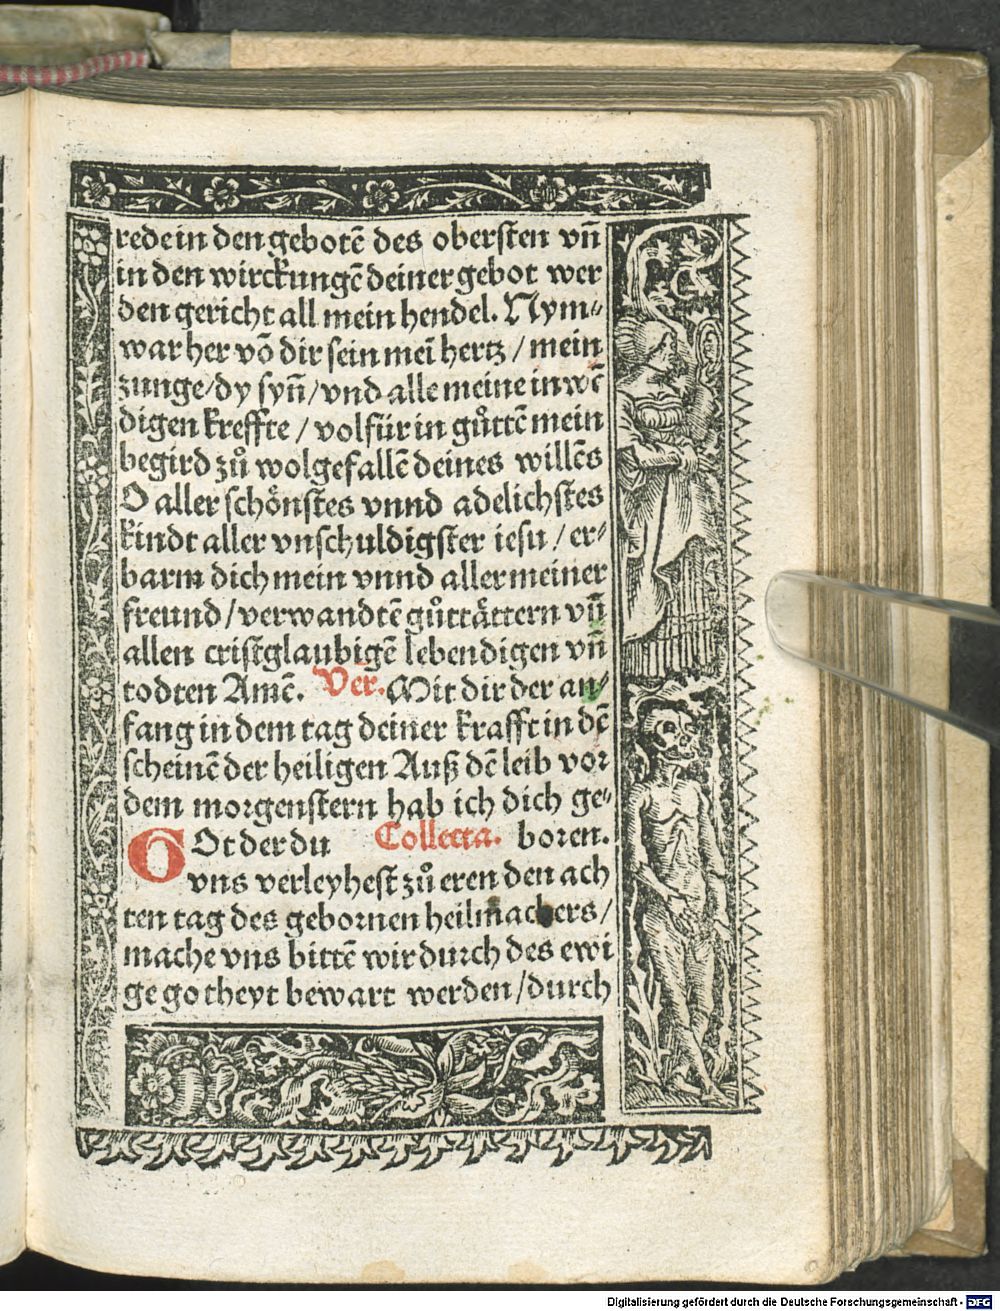 rede in den gebotē des obersten vn̄
in den wirckungē deiner gebot wer
den gericht all mein hendel. Nym⸗
war her vō dir sein meī hertz / mein
zunge / dy syn̄ / vnd alle meine inwē
digen kreffte / volfür in gůttē mein
begird zů wolgefallē deines willēs
O aller schönstes vnnd adelichstes
kindt aller vnschuldigster iesu / er⸗
barm dich mein vnnd aller meiner
freund / verwandtē gůttättern vn̄
allen cristglaubigē lebendigen vn̄
todten Amē. Ver̄. Mit dir der an⸗
fang in dem tag deiner krafft in dē
scheinē der heiligen Auß dē leib vor
dem morgenstern hab ich dich ge⸗
GOt der du Collecta. boren.
vns verleyhest zů eren den ach
ten tag des gebornen heilmachers /
mache vns bittē wir durch des ewi
ge gotheyt bewart werden / durch
Digitalisierung gefördert durch die Deutsche Forschungsgemeinschaft - DFG